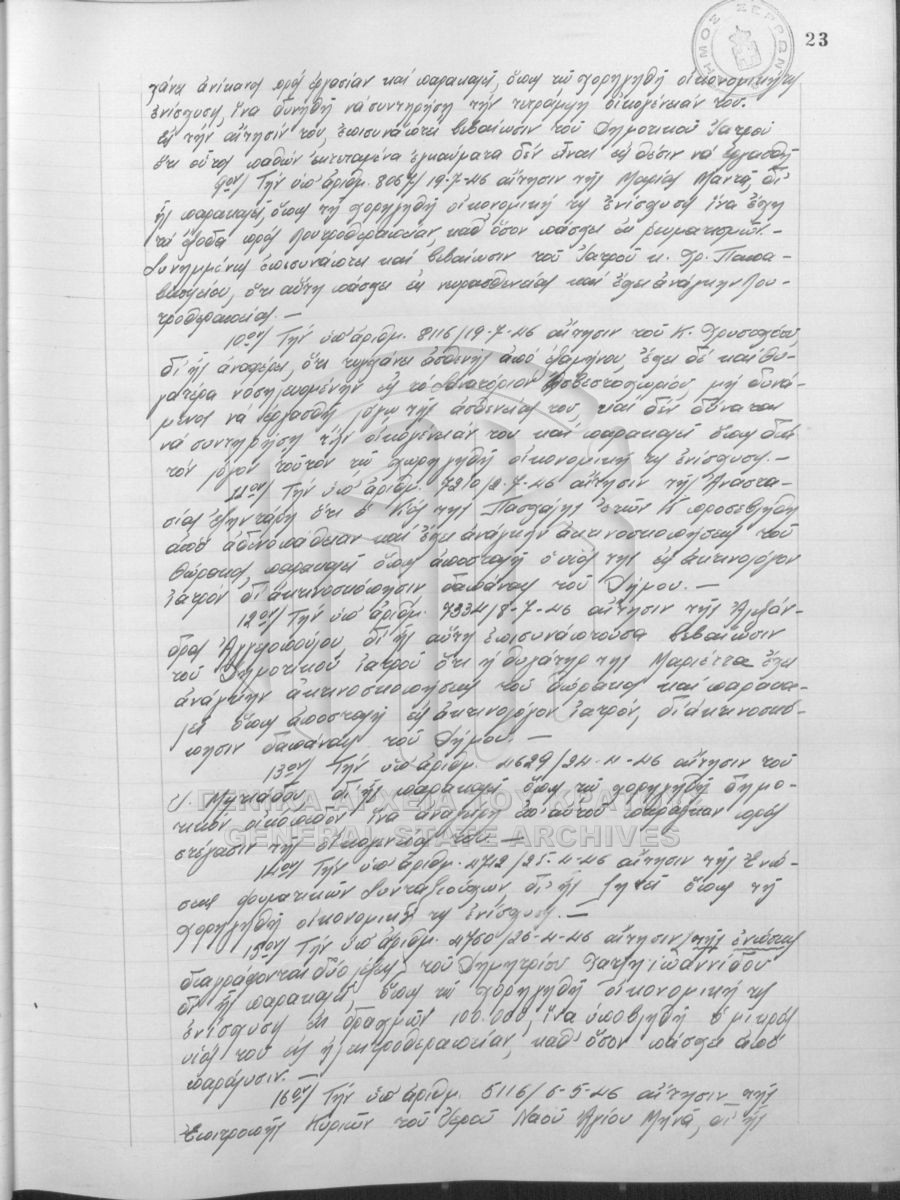 23
ΔΗΜΟΣ ΣΕΡΡΩΝ
χάνει ἀνίκανος πρός ἐργασίαν καί παρακαλεῖ, ὅπως τῷ χορηγηθῇ οἰκονομική τις
ἐνίσχυσις, ἵνα δυνηθῇ νά συντηρήσῃ τήν τετραμελῆ οἰκογένειάν του.
Εἰς τήν αἴτησίν του, ἐπισυνάπτει βεβαίωσιν τοῦ Δημοτικοῦ Ἰατροῦ
ὅτι οὗτος παθών ἐκτεταμένα ἐγκαύματα δέν εἶναι εἰς θέσιν νά ἐργασθῇ
9ον/ Τήν ὑπ' ἀριθμ. 8067/19-7-46 αἴτησιν τῆς Μαρίας Μαντᾶ, δι'
ἧς παρακαλεῖ, ὅπως τῇ χορηγηθῇ οἰκονομική τις ἐνίσχυσις ἵνα ἔχῃ
τά ἔξοδα πρός λουτροθεραπείαν, καθ' ὅσον πάσχει ἐκ ρευματισμῶν.-
Συνημμένως ἐπισυνάπτει καί βεβαίωσιν τοῦ Ἰατροῦ κ. Χρ. Παπα-
βασιλείου, ὅτι αὕτη πάσχει ἐκ νευρασθενείας καί ἔχει ἀνάγκην λου-
τροθεραπείας.-
10ον/ Τήν ὑπ' ἀριθμ. 8116/19-7-46 αἴτησιν τοῦ Κ. Χρυσοχόου
δι' ἧς ἀναφέρει, ὅτι τυγχάνει ἀσθενής ἀπό ἑξαμήνου, ἔχει δέ καί θυ-
γατέρα νοσηλευομένην εἰς τό Σανατόριον Ἀσβεστοχωρίου, μή δυνά-
μενος νά ἐργασθῇ λόγῳ τῆς ἀσθενείας του, καί δέν δύναται
νά συντηρήσῃ τήν οἰκογένειάν του καί παρακαλεῖ ὅπως διά
τόν λόγον τοῦτον τῷ χορηγηθῇ οἰκονομική τις ἐνίσχυσις.-
11ον/ Τήν ὑπ' ἀριθμ. 7210/2-7-46 αἴτησιν τῆς Ἀναστα-
σίας ὅτι ὁ υἱός της Πασχάλης ἐτῶν προσεβλήθη
ἀπό ἀδενοπάθειαν καί ἔχει ἀνάγκην ἀκτινοσκοπήσεως τοῦ
θώρακος παρακαλεῖ ὅπως ἀποσταλῇ ὁ υἱός της εἰς ἀκτινολόγον
ἰατρόν δι' ἀκτινοσκόπησιν δαπάναις τοῦ Δήμου.-
12ον/ Τήν ὑπ' ἀριθμ. 7334/8-7-46 αἴτησιν τῆς Ἀλεξάν-
δρας Ἀγγελοπούλου, δι' ἧς αὕτη ἐπισυνάπτουσα βεβαίωσιν
τοῦ Δημοτικοῦ Ἰατροῦ ὅτι ἡ θυγάτηρ της Μαριέττα ἔχει
ἀνάγκην ἀκτινοσκοπήσεως τοῦ θώρακος καί παρακα-
λεῖ ὅπως ἀποσταλῇ εἰς ἀκτινολόγον ἰατρόν, δι' ἀκτινοσκό-
πησιν δαπάναις τοῦ Δήμου.-
13ον/ Τήν ὑπ' ἀριθμ. 4629/24-4-46 αἴτησιν τοῦ
δι' ἧς παρακαλεῖ ὅπως τῷ χορηγηθῇ δημο-
τικόν οἰκόπεδον ἵνα ἀνεγείρῃ ἐπ' αὐτοῦ παράπηγμα πρός
στέγασιν τῆς οἰκογενείας του.-
14ον/ Τήν ὑπ' ἀριθμ. 4712/25-4-46 αἴτησιν τῆς Ἑνώ-
σεως φυματικῶν Συνταξιούχων, δι' ἧς ζητεῖ ὅπως τῇ
χορηγηθῇ οἰκονομική τις ἐνίσχυσις.-
15ον/ Τήν ὑπ' ἀριθμ. 4760/26-4-46 αἴτησιν/τῆς ἑνώσεως
διαγράφονται δύο λέξεις/ τοῦ Δημητρίου Χατζηϊωαννίδου
δι' ἧς παρακαλεῖ, ὅπως τῷ χορηγηθῇ οἰκονομική τις
ἐνίσχυσις ἐκ δραχμῶν 100.000, ἵνα ὑποβληθῇ ὁ μικρός
υἱός του εἰς ἠλεκτροθεραπείαν, καθ' ὅσον πάσχει ἀπό
παράλυσιν.-
16ον/ Τήν ὑπ' ἀριθμ. 5116/6-5-46 αἴτησιν τῆς
Ἐπιτροπῆς Κυριῶν τοῦ Ἱεροῦ Ναοῦ Ἁγίου Μηνᾶ, δι' ἧς
ΓΕΝΙΚΑ ΑΡΧΕΙΑ ΤΟΥ ΚΡΑΤΟΥΣ
GENERAL STATE ARCHIVES